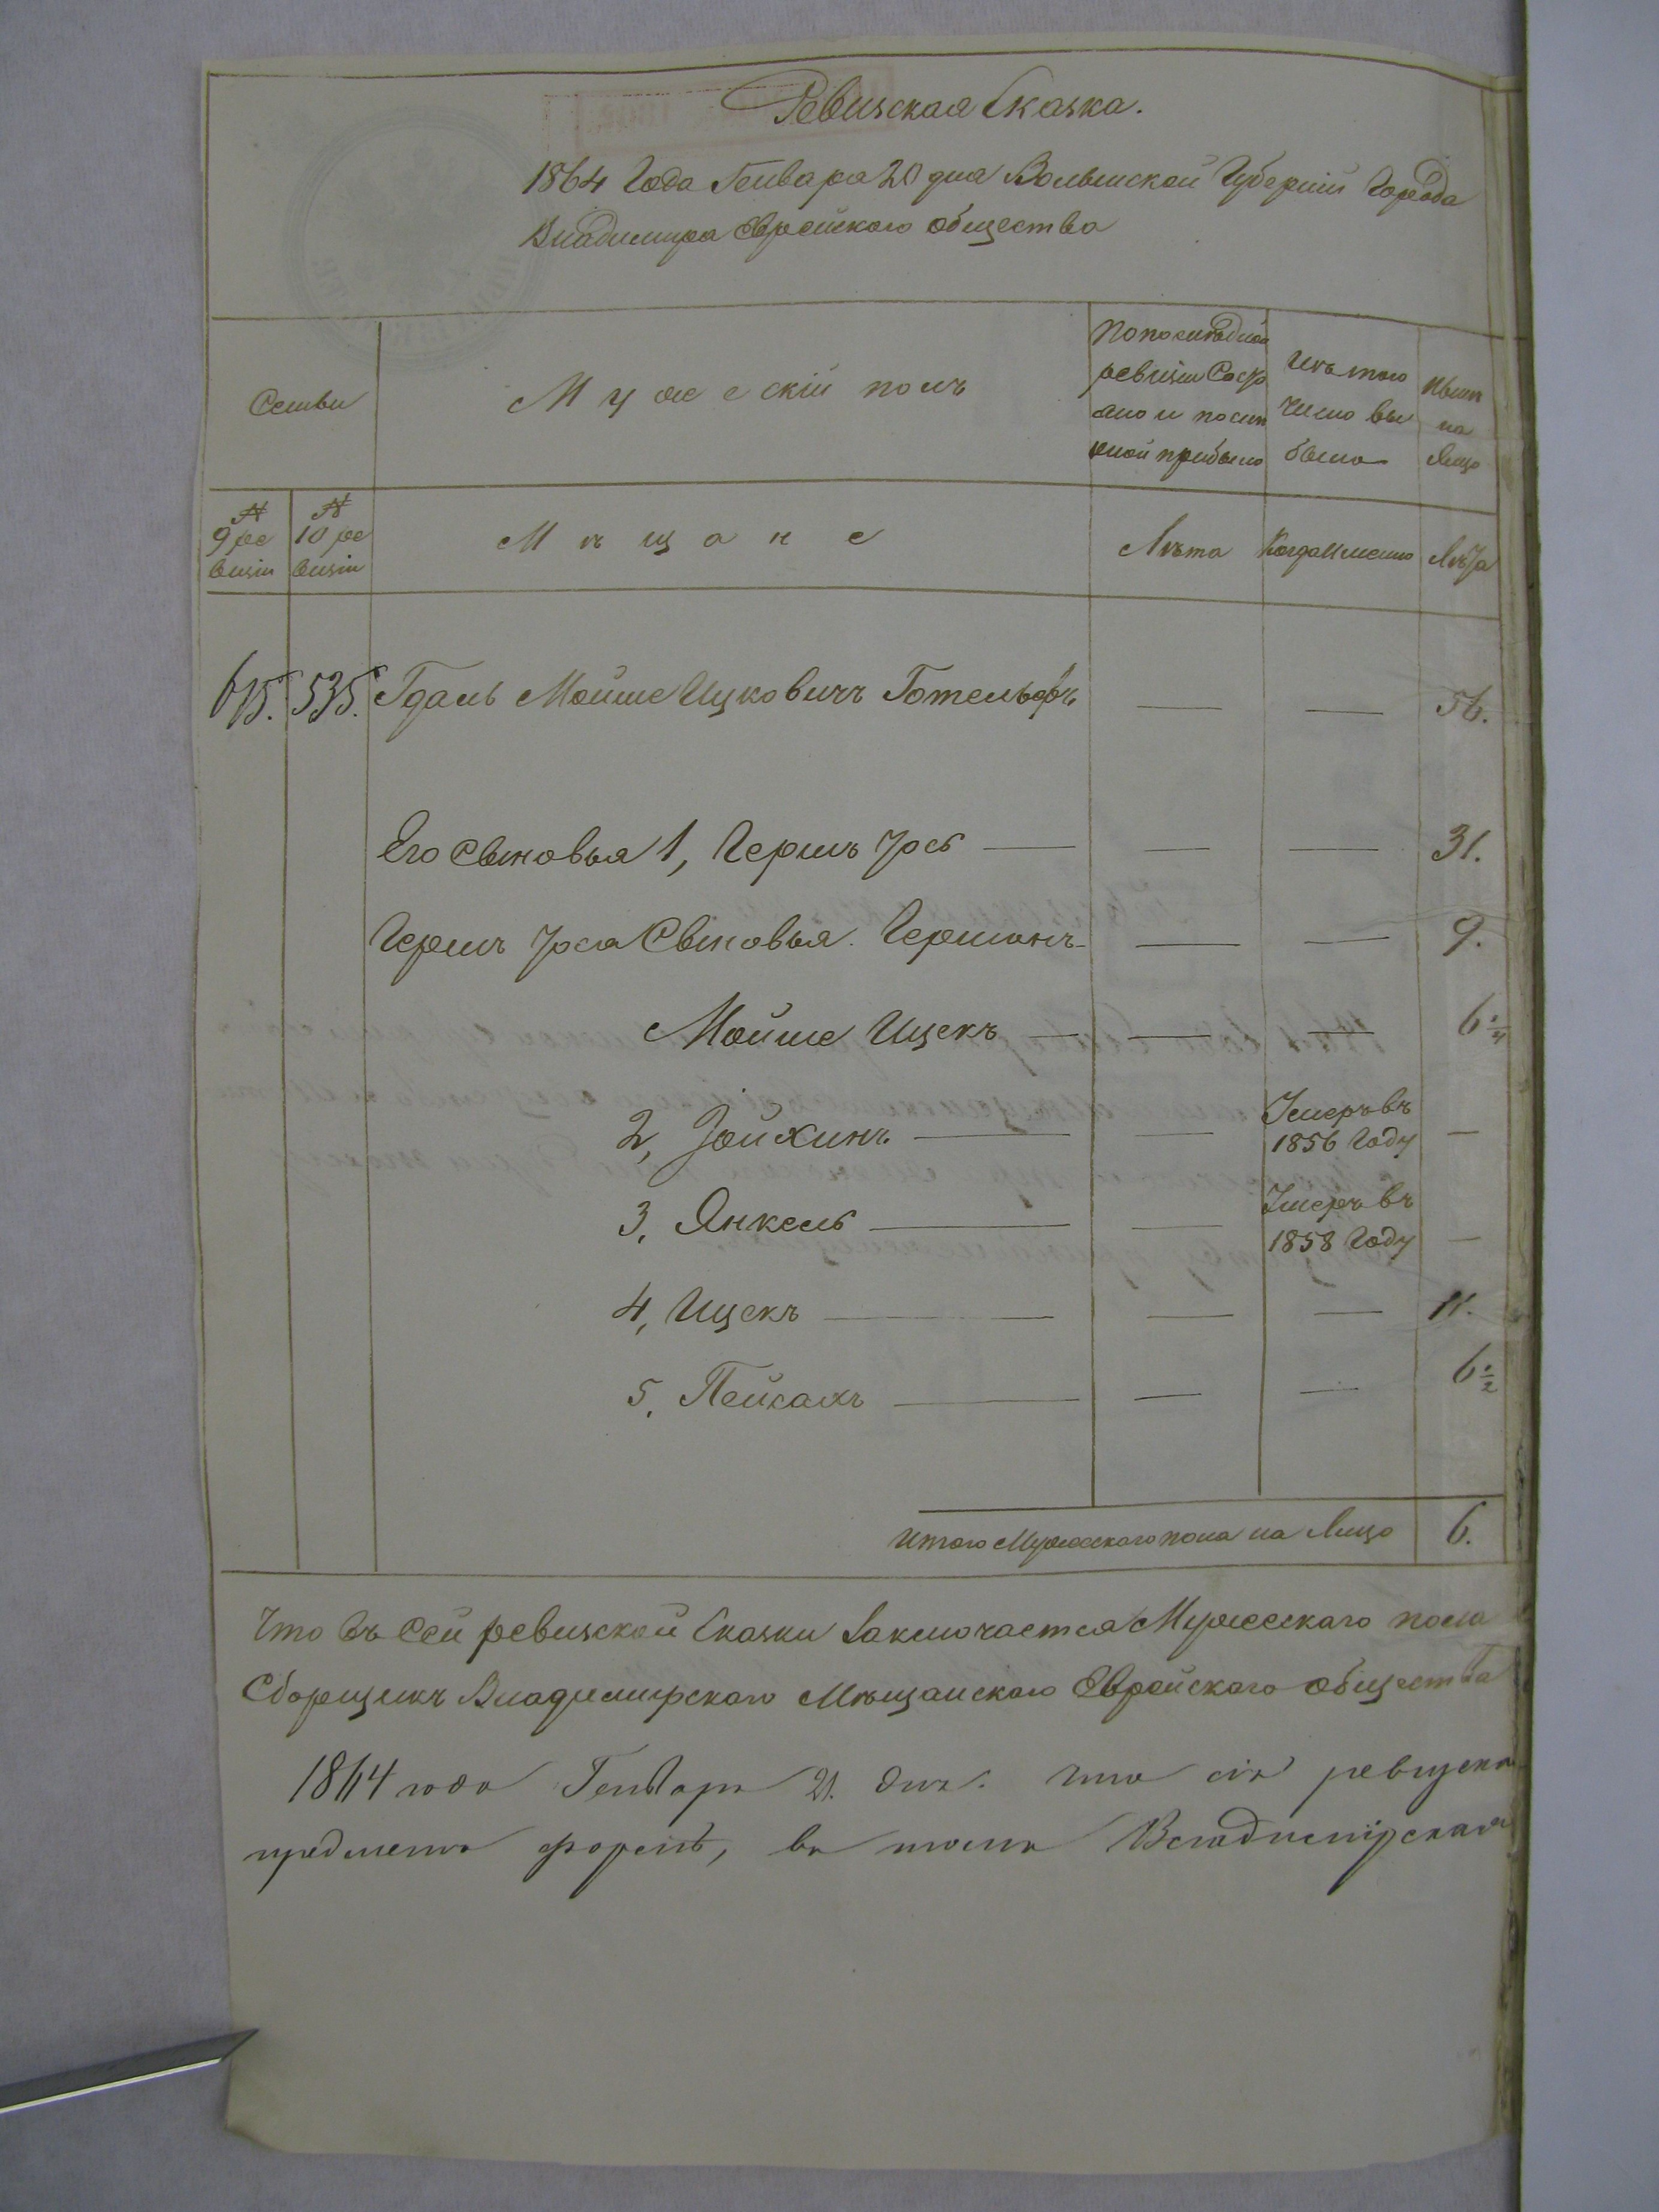 Ревизская Сказка.
1864 Года Генваря 20 дня Волынской Губерніи Города
Владимира Еврейского общества
Семьи
Мужескій полъ
По последней
ревизіи Состо
яло и после
оной прибыло
Изъ того
Числа вы
было
Ныне
на
Лицо
№
9 ре
визіи
№
10 ре
визіи
Мѣщане
Лѣта
Когда Именно
Лѣта
615.
535.
Гдаль Мойше Ицковичъ Готельфъ
56.
Его Сыновья 1, Гершъ Уось
31.
Гершъ Уося Сыновья. Гершонъ
9.
Мойше Ицекъ
6 1/4
2, Зойхинъ
Умеръ въ
1856 Году
3, Янкель
Умеръ въ
1858 Году
4, Ицекъ
11.
5, Пейсахъ
6 1/2
Итого Мужескаго пола на Лицо
6.
Что въ Сей ревизской Сказки Заключается Мужескаго пола
Сборщикъ Владимирскаго Мѣщанскаго Еврейскаго общества
1864 года Генваря 21. дня. что сія ревизская
предмета формѣ, въ томъ Владимірская